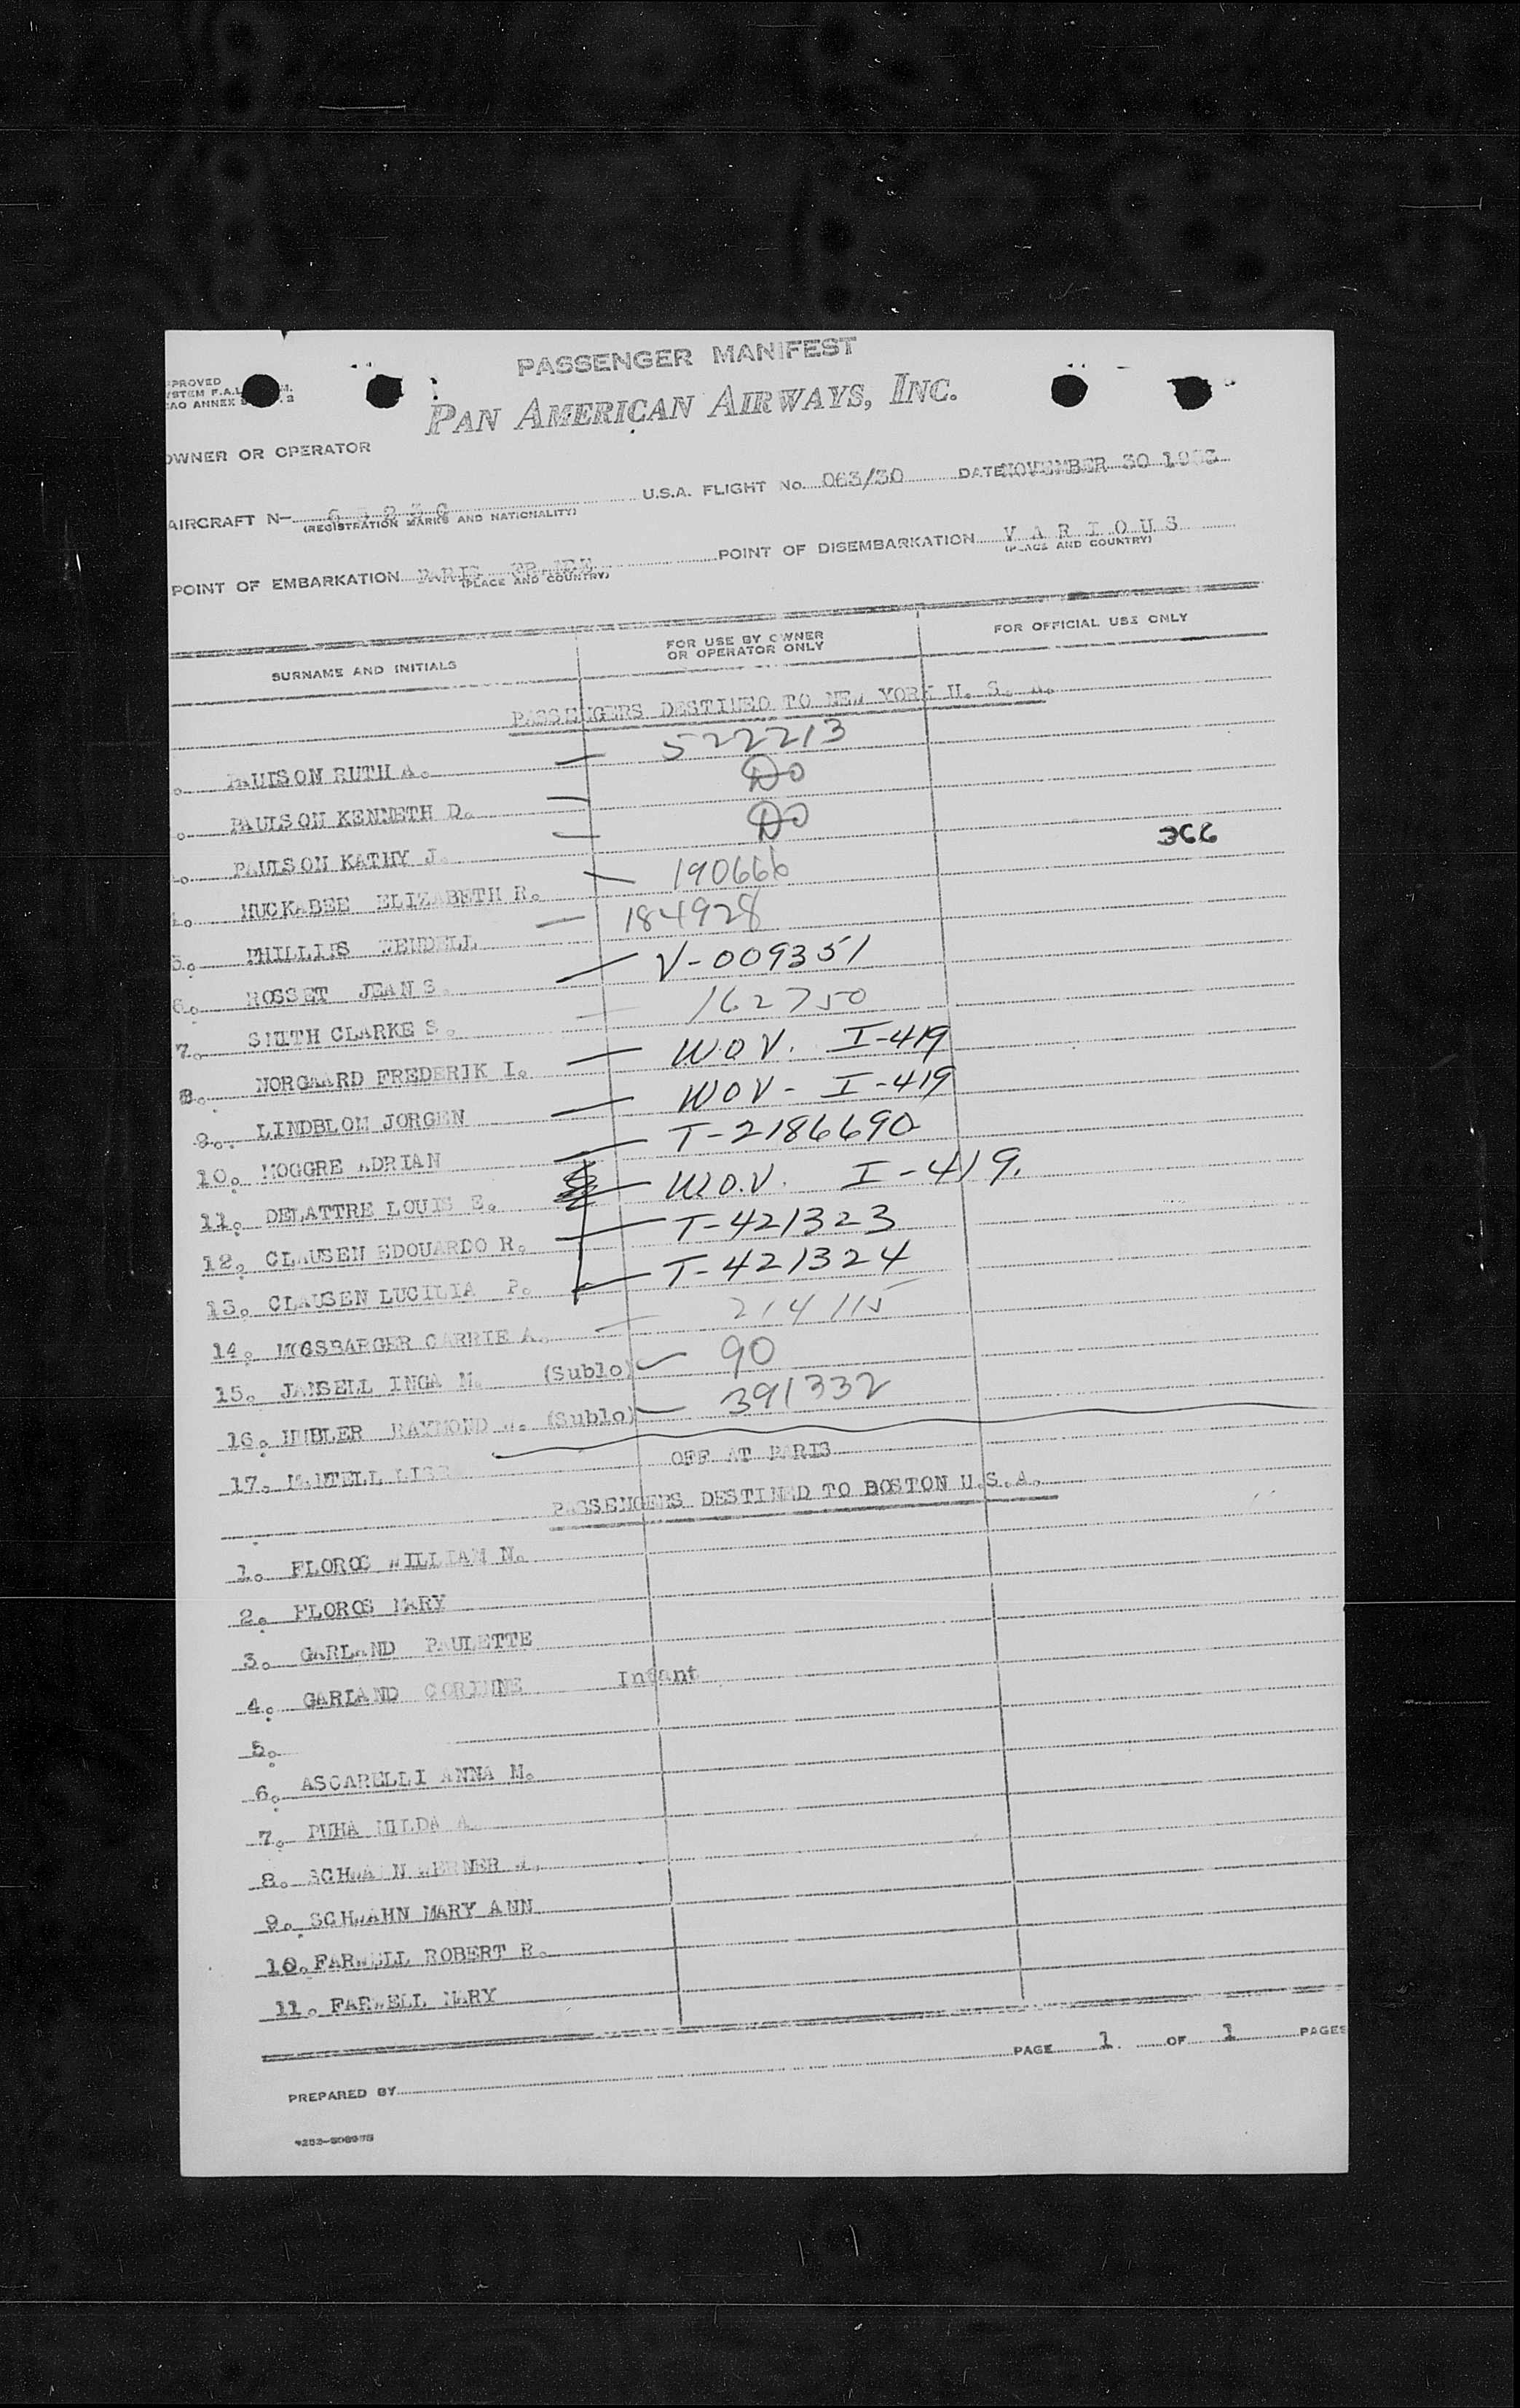 PASSENGER MANIFEST
PAN AMERICAN AIRWAYS, INC.
OWNER OR OPERATOR
AIRCRAFT N— U.S.A. FLIGHT No. 063/30 DATE NOVEMBER 30
(REGISTRATION MARKS AND NATIONALITY)
POINT OF EMBARKATION PARIS POINT OF DISEMBARKATION V A R I O U S
(PLACE AND COUNTRY) (PLACE AND COUNTRY)
SURNAME AND INITIALS FOR USE BY OWNER OR OPERATOR ONLY FOR OFFICIAL USE ONLY
PASSENGERS DESTINED TO NEW YORK U. S. A.
PAULSON RUTH A. — 522213
PAULSON KENNETH D. — Do
PAULSON KATHY J. — Do
366
HUCKABEE ELIZABETH R. — 190666
5. PHILLIPS WENDELL — 184928
6. ROSSET JEAN S. — V-009351
7. SMITH CLARKE S. — 162750
8. NORGAARD FREDERIK I. — WOV. I-419
9. LINDBLOM JORGEN — WOV- I-419
10. MOGGRE ADRIAN — T-2186690
11. DELATTRE LOUIS E. — W.O.V. I-419.
12. CLAUSEN EDOUARDO R. — T-421323
13. CLAUSEN LUCILIA P. — T-421324
14. CARRIE A. — 214115
15. JANSELL INGA M. (Sublo) — 90
16. RAYMOND (Sublo) — 391332
17. MANTELL OFF AT PARIS
PASSENGERS DESTINED TO BOSTON U.S.A.
1. FLOROS WILLIAM N.
2. FLOROS MARY
3. GARLAND PAULETTE
4. GARLAND CORINNE Infant
5.
6. ASCARELLI ANNA M.
7. PUHA MILDA A.
8. SCHWAHN WERNER W.
9. SCHWAHN MARY ANN
10. FARWELL ROBERT R.
11. FARWELL MARY
PAGE 1 OF 1 PAGES
PREPARED BY